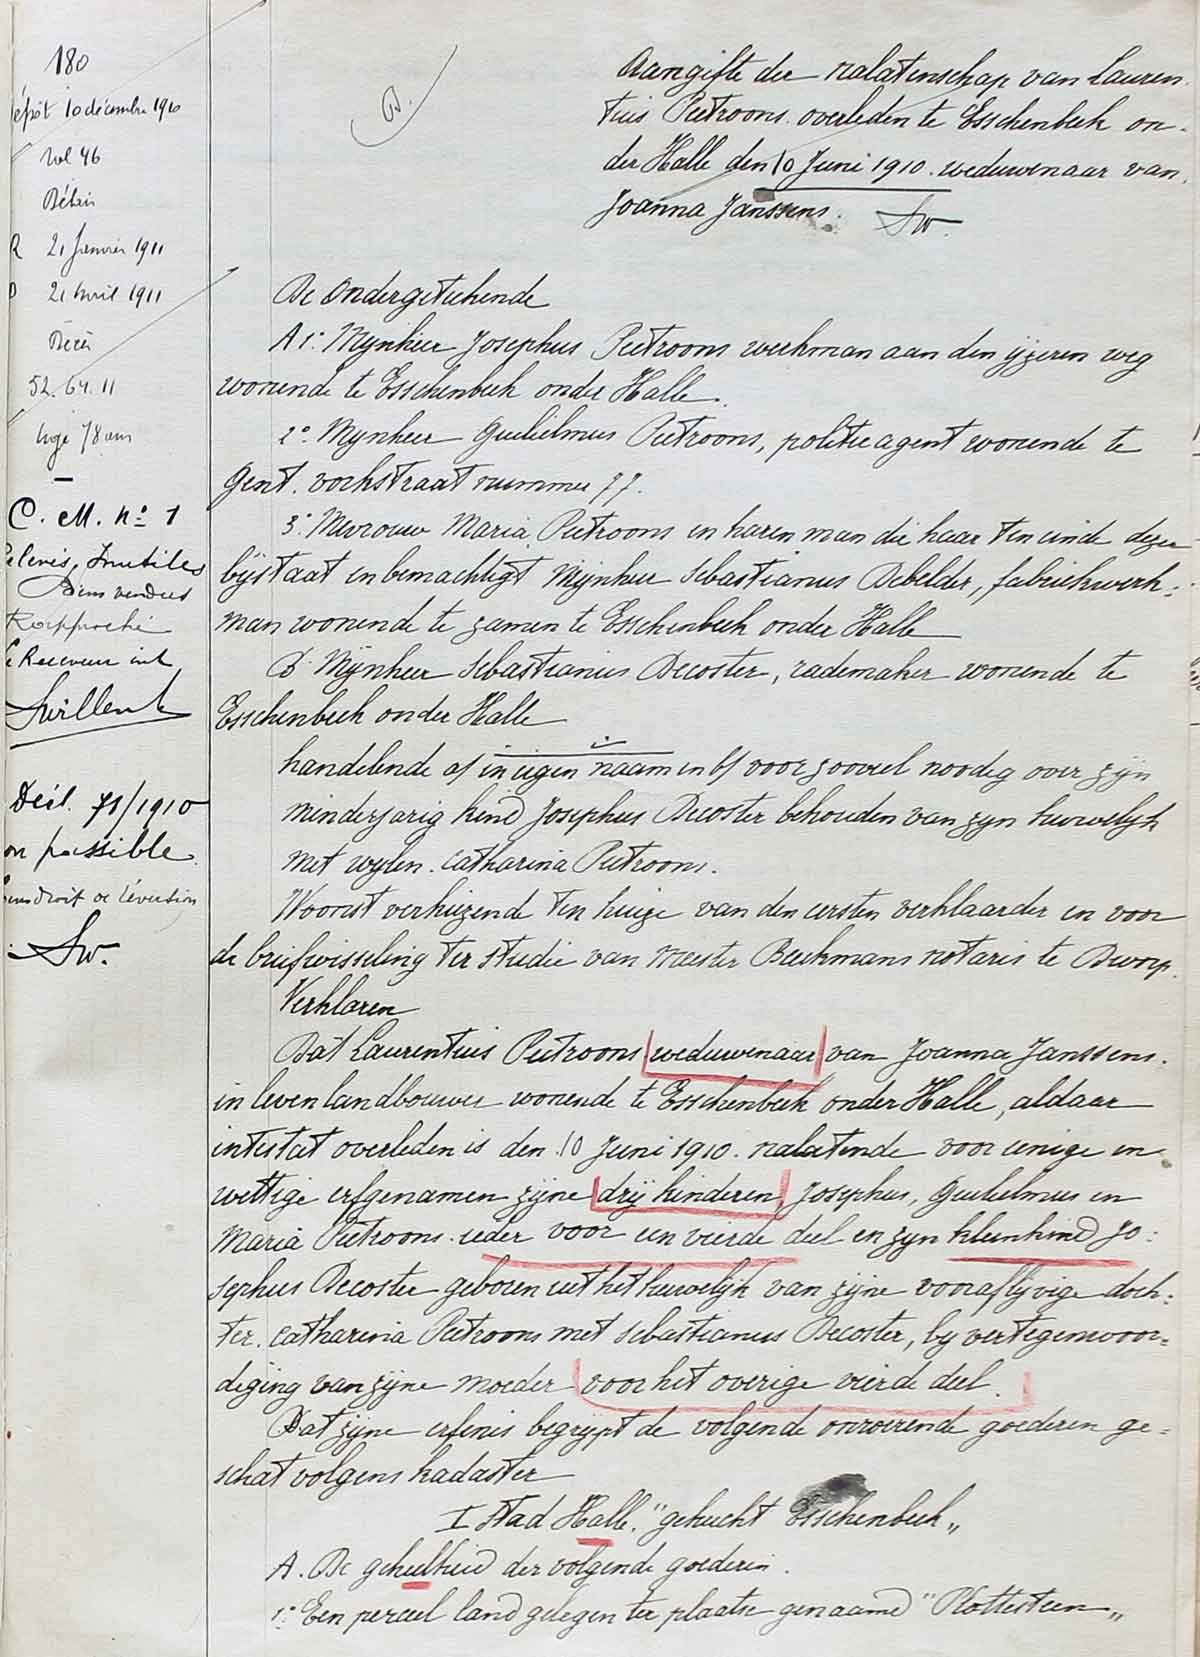 180
dépôt 10 décembre 1910
Vol 46
Délais
R 21 Janvier 1911
D 21 Avril 1911
Décès
52.64.11
âgé 78 ans
C. M. nº 1
Relevés, Inutiles
Biens vendus
Rapproché
Le Receveur int
Swillens
Décl. 71/1910
on passible
sans droit de
Sw.
B.
Aangifte der nalatenschap van Lauren-
tius Peetroons overleden te Esschenbeek on-
der Halle den 10 Juni 1910. weduwenaar van
Joanna Janssens. Sw.
De Ondergeteekende
A 1º. Mynheer Josephus Peetroons werkman aan den yzeren weg
wonende te Esschenbeek onder Halle.
2º. Mynheer Gulielmus Peetroons, politieagent wonende te
Gent. vorkstraat nummer 77.
3º. Mevrouw Maria Peetroons en haren man die haar ten einde dezer
bijstaat en bemachtigt Mynheer Sebastianus Debelder, fabriekwerk-
man wonende te zamen te Esschenbeek onder Halle
B. Mynheer Sebastianus Decoster, rademaker wonende te
Esschenbeek onder Halle
handelende of in eigen naam en of voor zooveel noodig over zyn
minderjarig kind Josephus Decoster behouden van zyn huwelyk
met wylen. Catharina Peetroons.
Woonst verkiezende ten huize van den eersten verklaarder en voor
de briefwisseling ter studie van Meester Beekmans notaris te Dworp.
Verklaren
Dat Laurentius Peetroons weduwenaar van Joanna Janssens.
in leven landbouwer wonende te Esschenbeek onder Halle, aldaar
intestat overleden is den 10 Juni 1910. nalatende voor eenige en
wettige erfgenamen zyne dry kinderen, Josephus, Gulielmus en
Maria Peetroons. ieder voor een vierde deel en zyn kleinkind Jo-
sephus Decoster geboren uit het huwelyk van zyne vooraflyvige doch-
ter. Catharina Peetroons met Sebastianus Decoster, by vertegenwoor-
diging van zyne moeder voor het overige vierde deel.
Dat zyne erfenis begrypt de volgende onroerende goederen ge-
schat volgens kadaster
I Stad Halle. "gehucht Esschenbeek„
A. De geheelheid der volgende goederen.
1º. Een perceel land gelegen ter plaatse genaamd "Plottesteen„